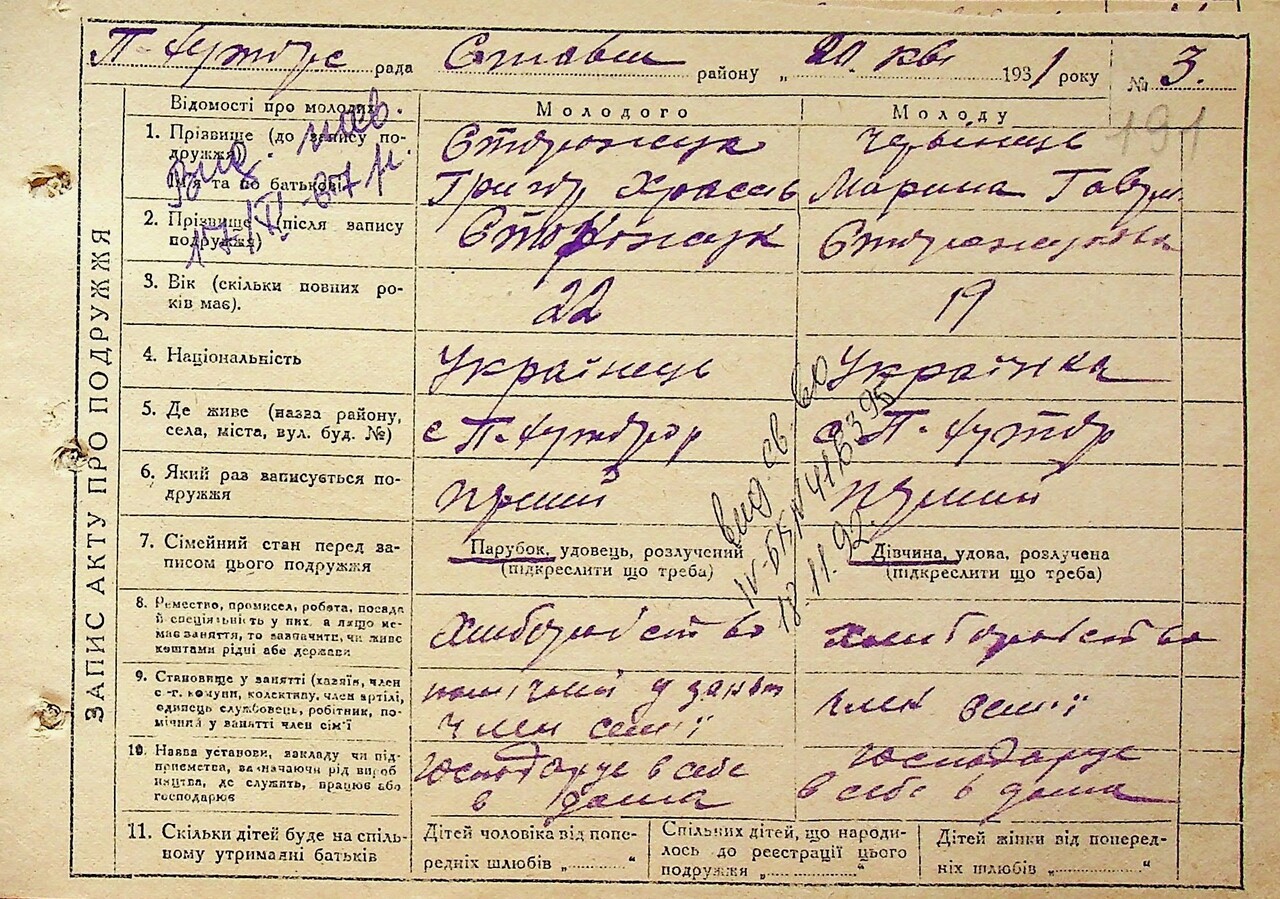 П-Хутор рада Ставищ району „ 20 кві 1931 року № 3.
191
ЗАПИС АКТУ ПРО ПОДРУЖЖЯ
Відомості про молодих
Молодого
Молоду
1. Прізвище (до запису по-
дружжя)
Ім'я та по батькові
Сторожук
Григор
Червінець
Марина
Вид.
2. Прізвище (після запису
подружжя)
Сторожук
Сторожукова
3. Вік (скільки повних ро-
ків має).
22
19
4. Національність
Українець
Українка
5. Де живе (назва району,
села, міста, вул. буд. №)
с П-Хутор
с П-Хутор
6. Який раз записується по-
дружжя
перший
перший
вид. св. во
IV-БК № 418395
18.11.92.
7. Сімейний стан перед за-
писом цього подружжя
Парубок, удовець, розлучений
(підкреслити що треба)
Дівчина, удова, розлучена
(підкреслити що треба)
8. Ремество, промисел, робота, посада
й спеціяльність у них, а якщо не-
має заняття, то зазначити, чи живе
коштами рідні або держави
Хліборобство
Хліборобство
9. Становище у занятті (хазяїн, член
с.-г. комуни, колективу, член артілі,
одинець службовець, робітник, по-
мічний у занятті член сім'ї
помічний у занят
член семії
член семії
10. Назва установи, закладу чи під-
приємства, зазначаючи рід вироб
ництва, де служить, працює або
господарює
Господарує в себе
в дома
Господарує
в себе в дома
11. Скільки дітей буде на спіль-
ному утриманні батьків
Дітей чоловіка від попе-
редніх шлюбів „ “
Спільних дітей, що народи-
лось до реєстрації цього
подружжя „ “
Дітей жінки від поперед-
ніх шлюбів „ “